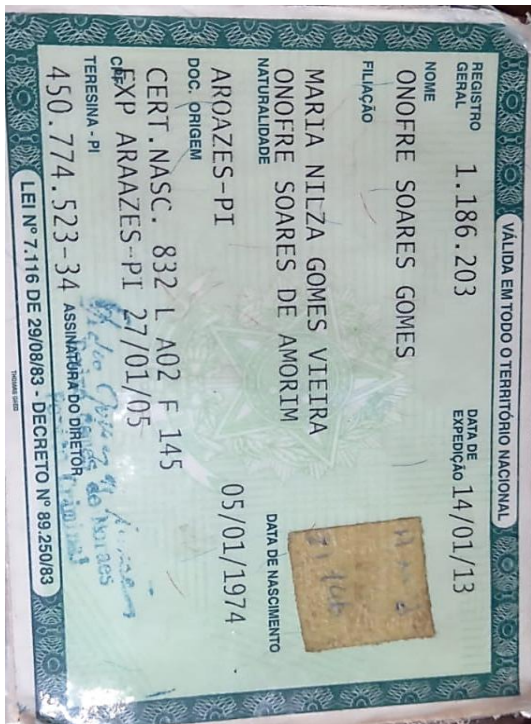 VÁLIDA EM TODO O TERRITÓRIO NACIONAL
REGISTRO GERAL 1.186.203 DATA DE EXPEDIÇÃO 14/01/13
NOME
ONOFRE SOARES GOMES
FILIAÇÃO
MARIA NILZA GOMES VIEIRA
ONOFRE SOARES DE AMORIM
NATURALIDADE DATA DE NASCIMENTO
AROAZES-PI 05/01/1974
DOC. ORIGEM
CERT.NASC. 832 L A02 F 145
EXP ARAAZES-PI 27/01/05
CPF
TERESINA - PI
450.774.523-34 ASSINATURA DO DIRETOR
LEI Nº 7.116 DE 29/08/83 - DECRETO Nº 89.250/83
THOMAS GREG